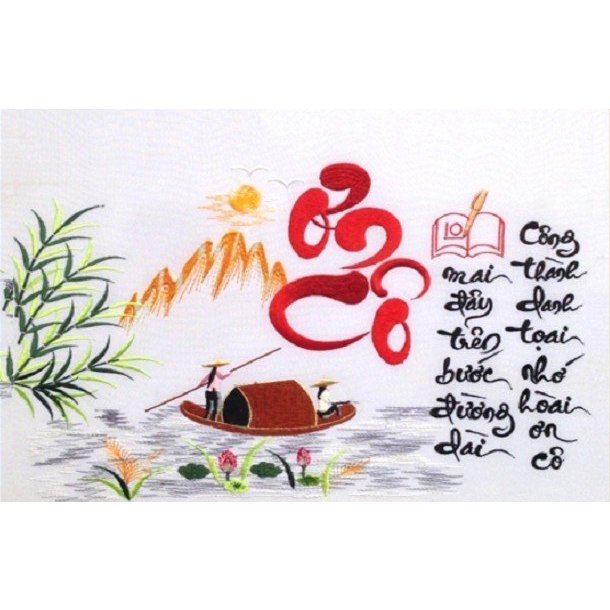 Ơn
Cô
10
mai đây trên bước đường dài
Công thành danh toại nhớ hoài ơn cô